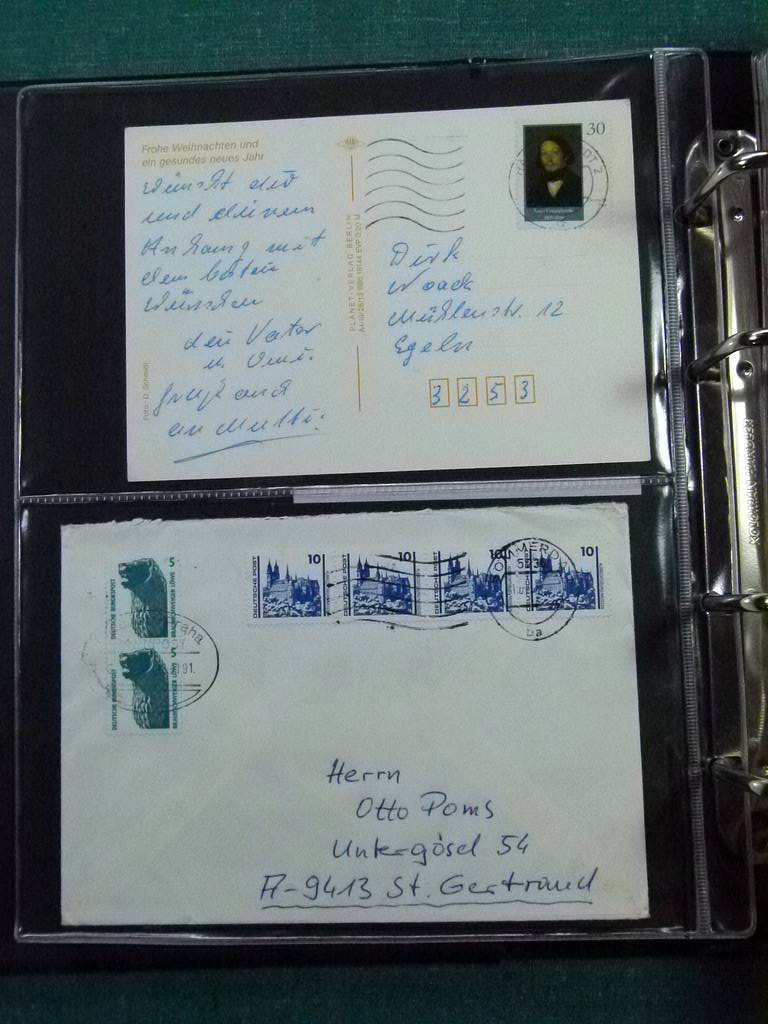 Frohe Weihnachten und
ein gesundes neues Jahr
wünscht dir
und deinem
Anhang mit
den besten
Wünschen
dein Vater
u. Omi.
an Mutti.
Foto: D. Schmidt
PLANET-VERLAG BERLIN
30
Dirk
Noack
Mühlenstr. 12
Egeln
3 2 5 3
5
DEUTSCHE BUNDESPOST
BRAUNSCHWEIGER LÖWE
5
DEUTSCHE BUNDESPOST
BRAUNSCHWEIGER LÖWE
91.
DEUTSCHE POST
10
DEUTSCHE POST
10
DEUTSCHE POST
10
DEUTSCHE POST
10
SÖMMERDA
ba
Herrn
Otto Poms
Untergösel 54
A-9413 St. Gertraud